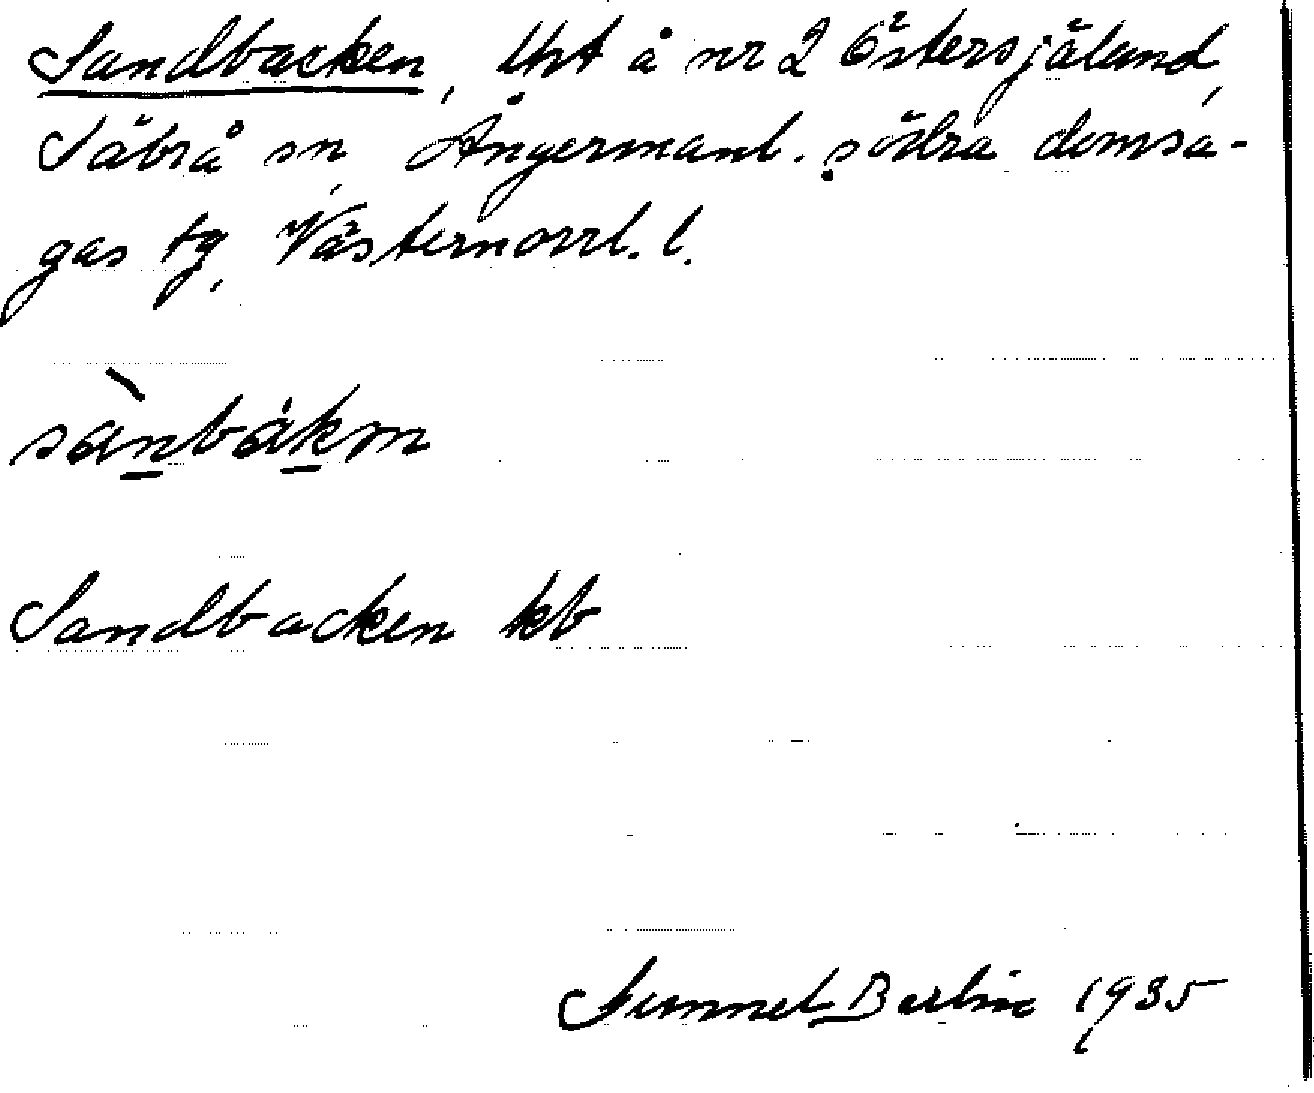 Sandbacken, lht å nr 2 Östersjäland,
Säbrå sn, Ångermanl. södra domsa-
gas tg, Västernorrl. l.
sànbákm
Sandbacken kb
Berlin 1935